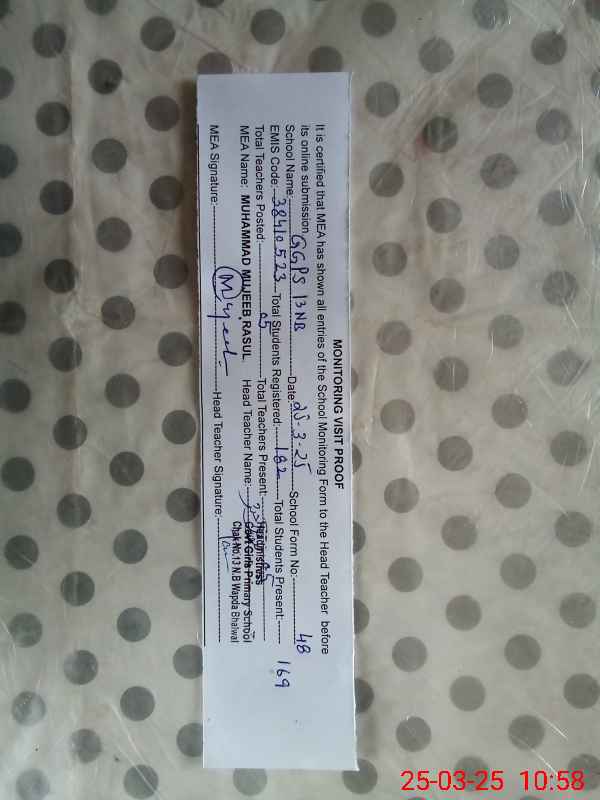 MONITORING VISIT PROOF
It is certified that MEA has shown all entries of the School Monitoring Form to the Head Teacher before
its online submission
School Name: GGPS 13NB Date: 25-3-25 School Form No: 48
EMIS Code: 38410523 Total Students Registered: 182 Total Students Present: 169
Total Teachers Posted: 05 Total Teachers Present: 05
MEA Name: MUHAMMAD MUJEEB RASUL Head Teacher Name:
Headmistress
Govt Girls Primary School
Chak No.13 N.B Wapda Bhalwal
MEA Signature: Mujeeb Head Teacher Signature:
25-03-25 10:58